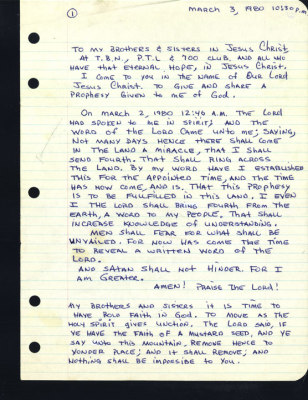 ①
MARCH 3, 1980 10:30 P.M
TO MY BROTHERS & SISTERS IN JESUS CHRIST
AT T.B.N., P.T.L & 700 CLUB, AND ALL WHO
HAVE THAT ETERNAL HOPE, IN JESUS CHRIST.
I COME TO YOU IN THE NAME OF OUR LORD
JESUS CHRIST. TO GIVE AND SHARE A
PROPHESY GIVEN TO ME OF GOD.
ON MARCH 2, 1980 12:40 A.M. THE LORD
HAD SPOKEN TO ME IN SPIRIT; AND THE
WORD OF THE LORD CAME UNTO ME; SAYING,
NOT MANY DAYS HENCE THERE SHALL COME
IN THE LAND A MIRACLE, THAT I SHALL
SEND FOURTH. THAT SHALL RING ACROSS
THE LAND. BY MY WORD HAVE I ESTABLISHED
THIS FOR THE APPOINTED TIME, AND THE TIME
HAS NOW COME, AND IS. THAT THIS PROPHESY
IS TO BE FULLFILLED IN THIS LAND. I EVEN
I THE LORD SHALL BRING FOURTH FROM THE
EARTH, A WORD TO MY PEOPLE. THAT SHALL
INCREASE KNOWLEDGE OF UNDERSTANDING.
MEN SHALL FEAR FOR WHAT SHALL BE
UNVAILED. FOR NOW HAS COME THE TIME
TO REVEAL A WRITTEN WORD OF THE
LORD.
AND SATAN SHALL NOT HINDER. FOR I
AM GREATER.
AMEN! PRAISE THE LORD!
MY BROTHERS AND SISTERS IT IS TIME TO
HAVE BOLD FAITH IN GOD. TO MOVE AS THE
HOLY SPIRIT GIVES UNCTION. THE LORD SAID, IF
YE HAVE THE FAITH OF A MUSTARD SEED, AND YE
SAY UNTO THIS MOUNTAIN, REMOVE HENCE TO
YONDER PLACE; AND IT SHALL REMOVE; AND
NOTHING SHALL BE IMPOSSIBLE TO YOU.